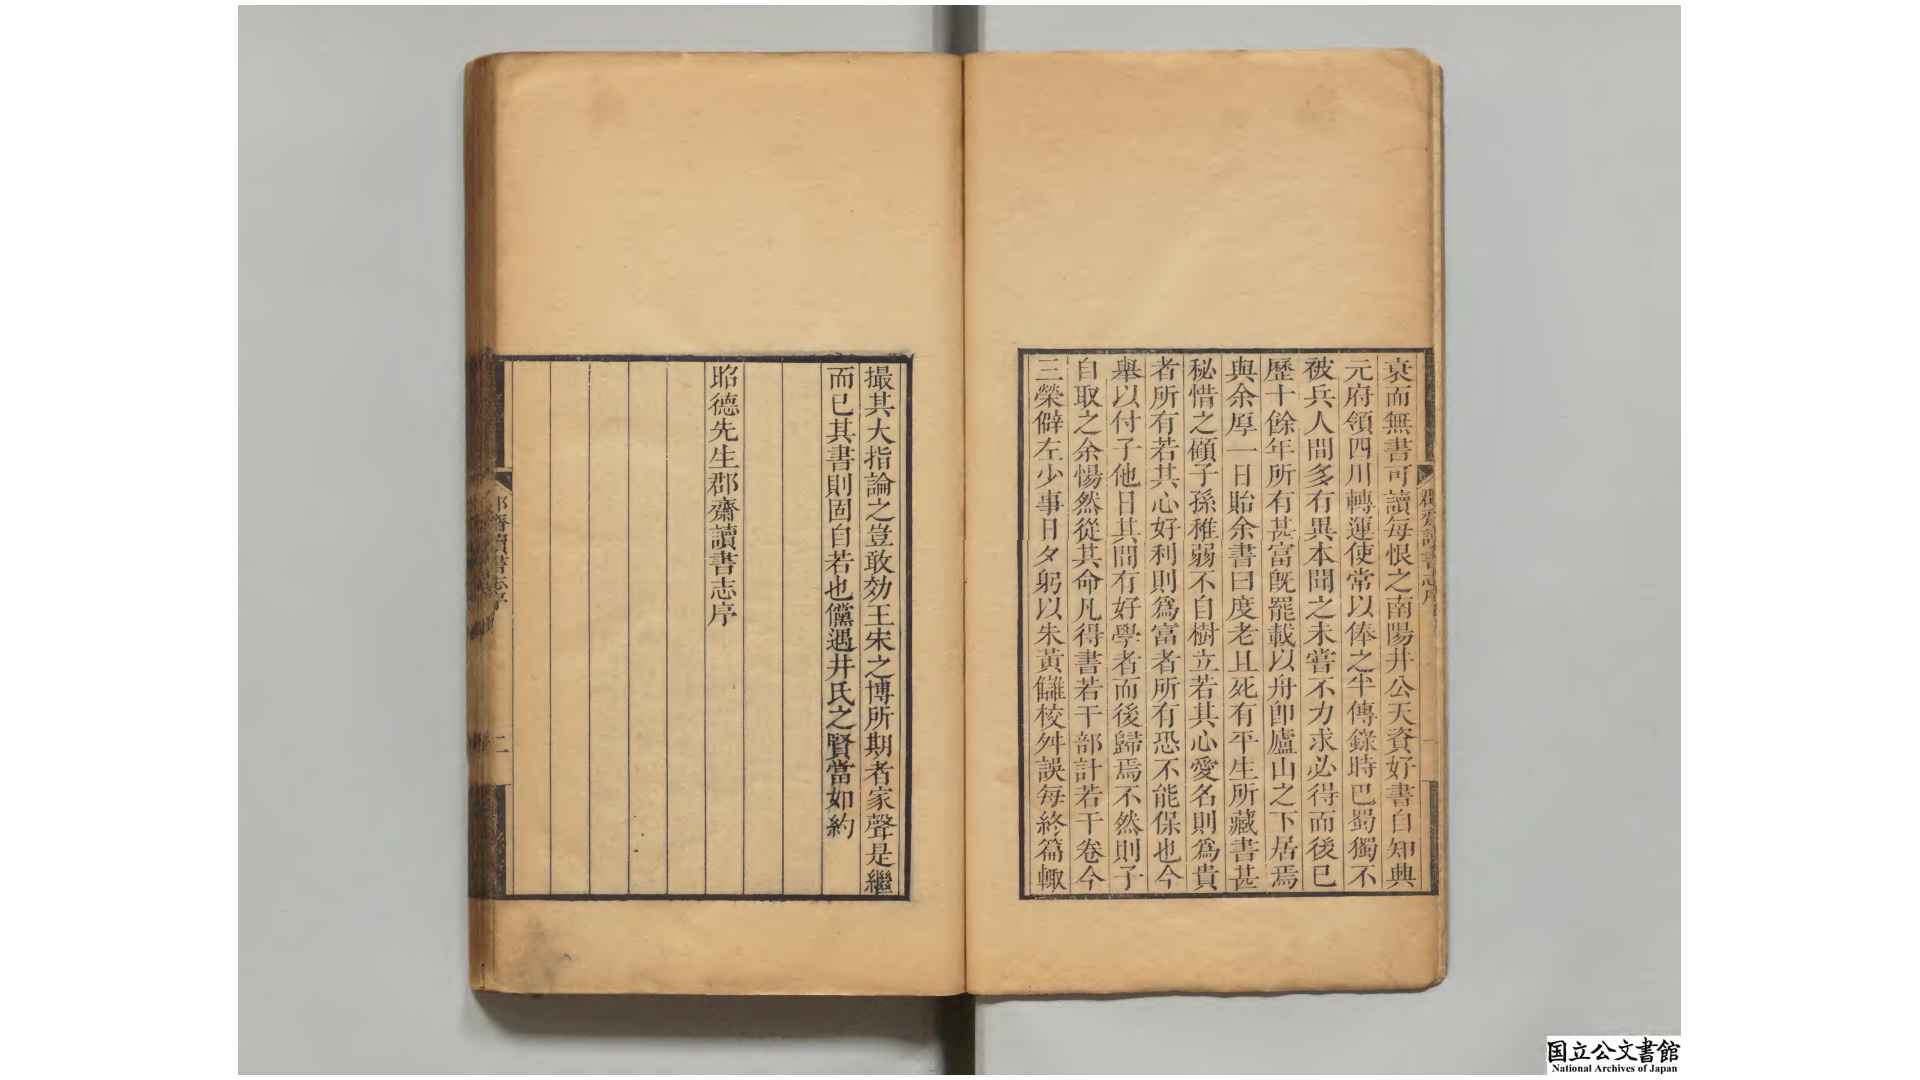 衰而無書可讀每恨之南陽井公天資好書自知典
元府領四川轉運使常以俸之半傳錄時巴蜀獨不
被兵人間多有異本聞之未嘗不力求必得而後已
歷十餘年所有甚富旣罷載以舟卽廬山之下居焉
與余厚一日貽余書曰度老且死有平生所藏書甚
秘惜之顧子孫稚弱不自樹立若其心愛名則爲貴
者所有若其心好利則爲富者所有恐不能保也今
舉以付子他日其間有好學者而後歸焉不然則子
自取之余惕然從其命凡得書若干部計若干卷今
三榮僻左少事日夕躬以朱黃讎校舛誤每終篇輙
撮其大指論之豈敢効王宋之博所期者家聲是繼
而已其書則固自若也儻遇井氏之賢當如約
昭德先生郡齋讀書志序
郡齋讀書志序
二
国立公文書館
National Archives of Japan